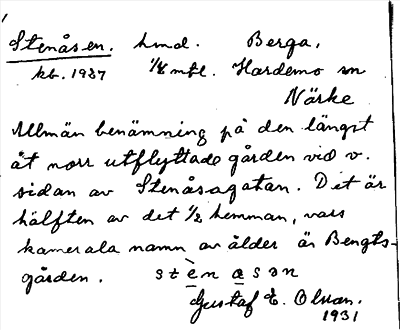 Stenåsen. hmd. Berga,
kb. 1937 1/4 mtl. Hardemo sn
Närke
Allmän benämning på den längst
åt norr utflyttade gården vid v.
sidan av Stenåsagatan. Det är
hälften av det 1/2 hemman, vars
kamerala namn av ålder är Bengts-
gården. stènasən
Gustaf E. Olsson.
1931